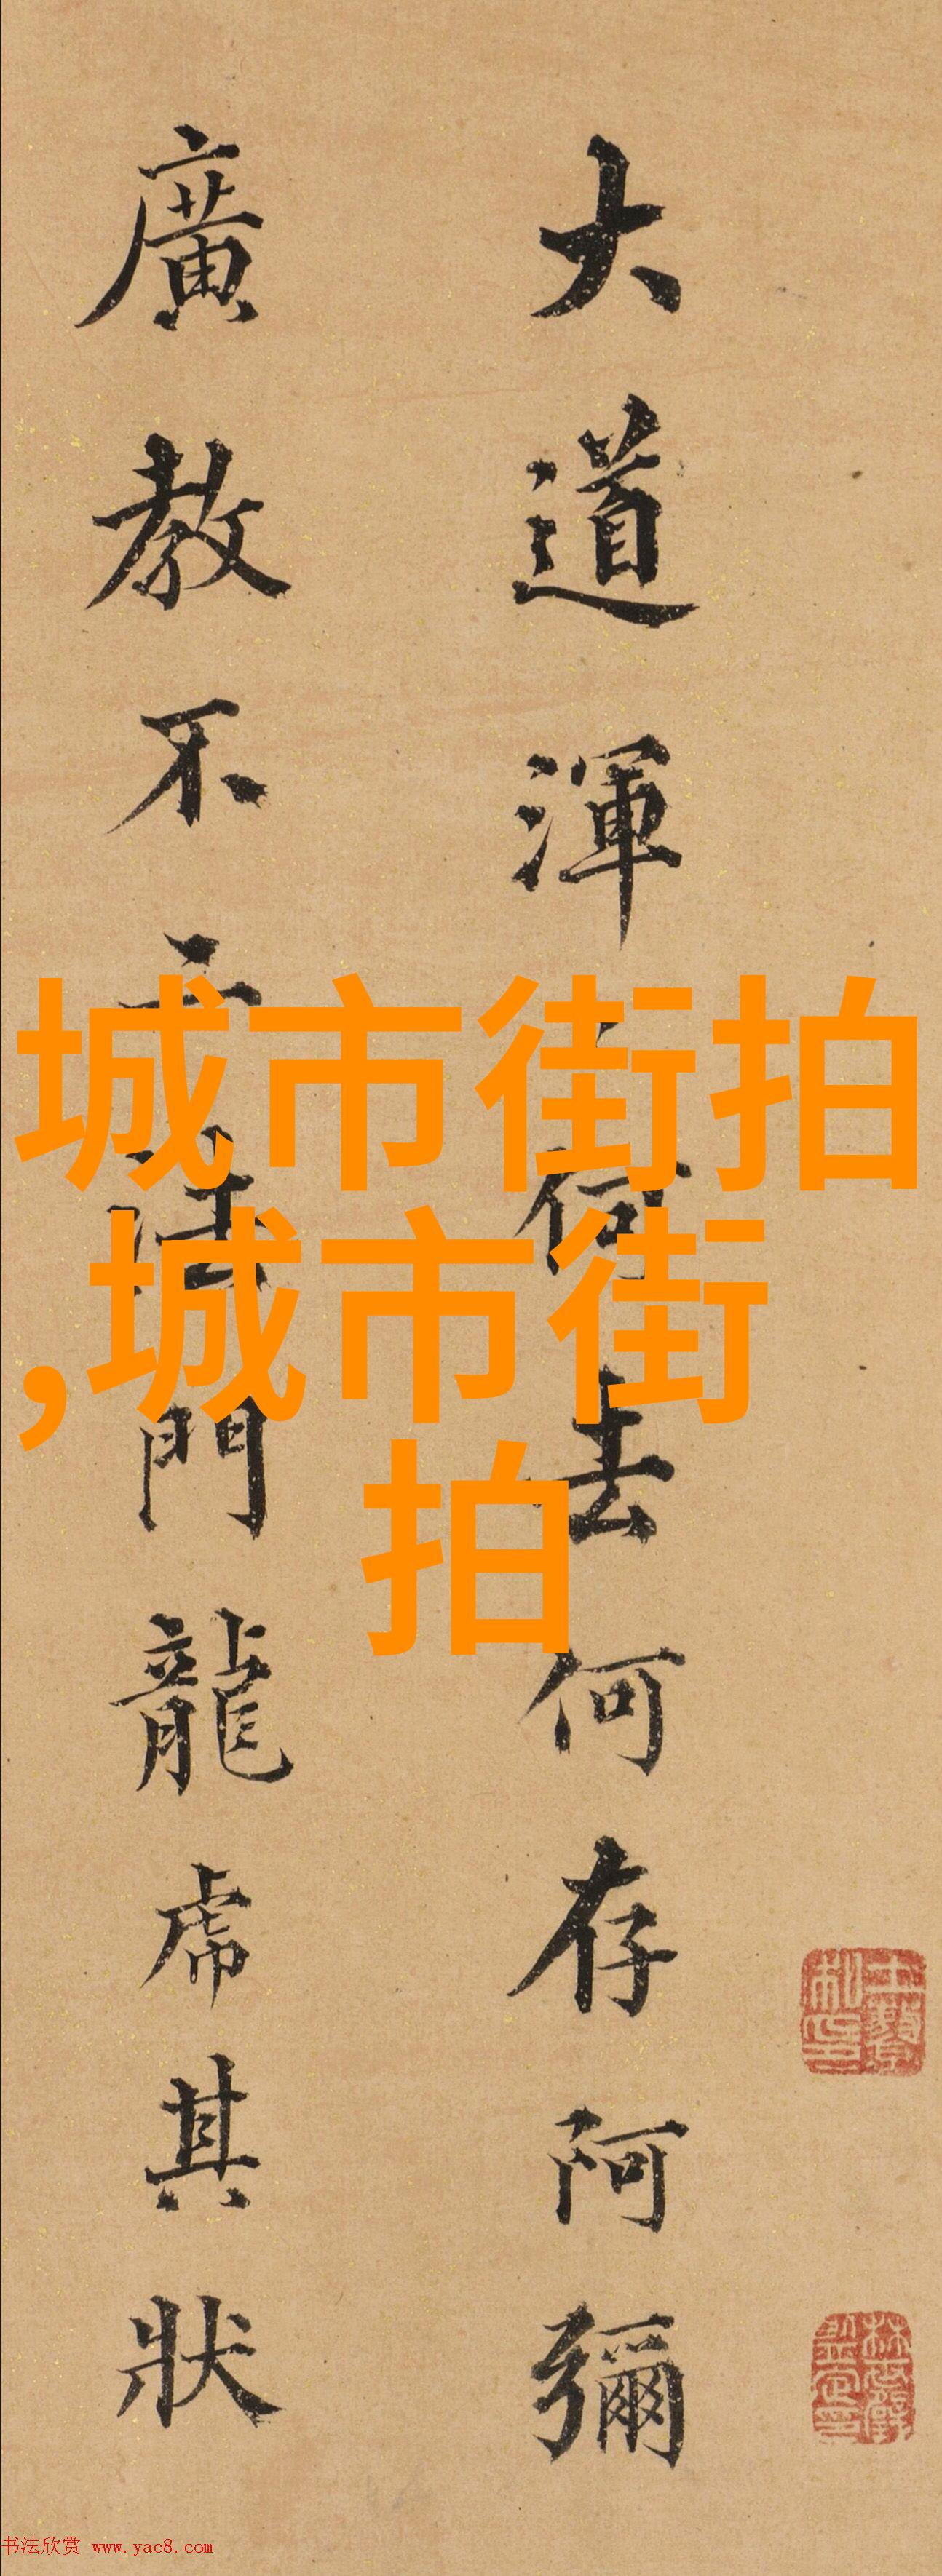 大道渾何去何存阿彌
廣教不二法門龍虎其狀
城市街拍
,城市街
拍
书法欣赏 www.yac8.com